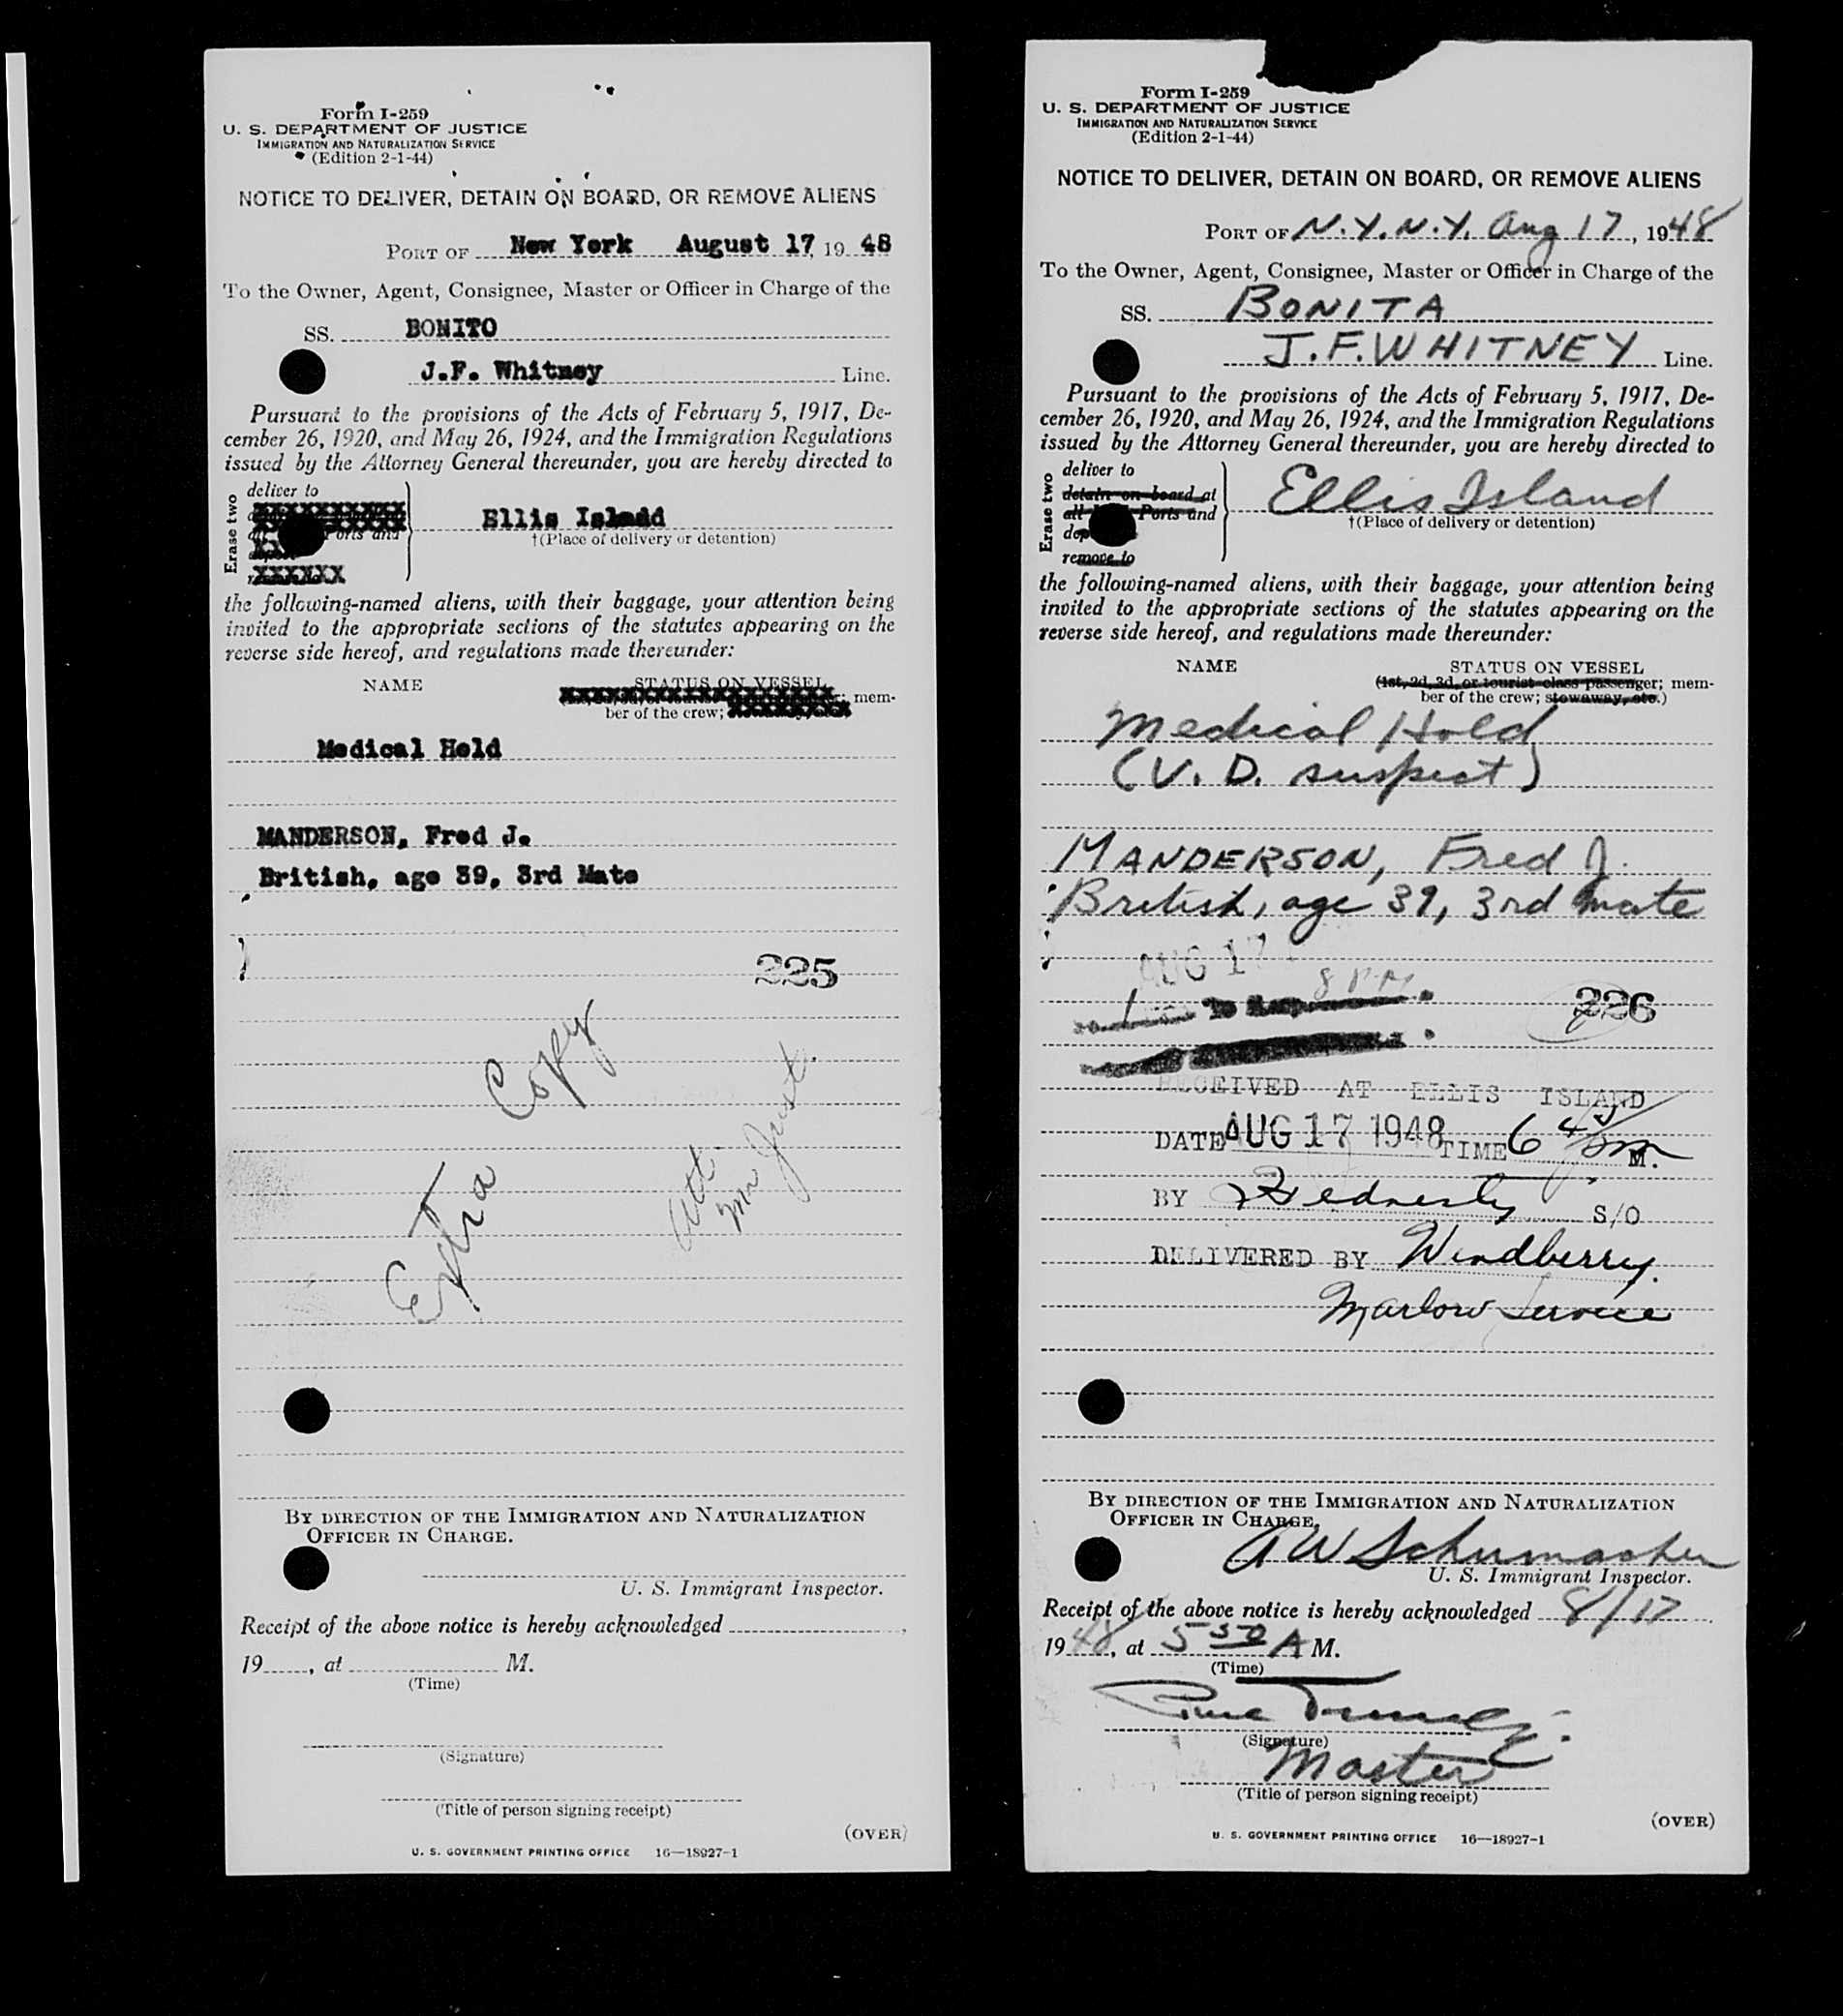 Form I-259
U. S. DEPARTMENT OF JUSTICE
IMMIGRATION AND NATURALIZATION SERVICE
(Edition 2-1-44)
NOTICE TO DELIVER, DETAIN ON BOARD, OR REMOVE ALIENS
PORT OF New York August 17, 19 48
To the Owner, Agent, Consignee, Master or Officer in Charge of the
SS. BONITO
J.F. Whitney Line.
Pursuant to the provisions of the Acts of February 5, 1917, De-
cember 26, 1920, and May 26, 1924, and the Immigration Regulations
issued by the Attorney General thereunder, you are hereby directed to
Erase two
deliver to
Ports and
XXXXXX
Ellis Isladd
†(Place of delivery or detention)
the following-named aliens, with their baggage, your attention being
invited to the appropriate sections of the statutes appearing on the
reverse side hereof, and regulations made thereunder:
NAME STATUS ON VESSEL
mem-
ber of the crew;
Medical Hold
MANDERSON, Fred J.
British, age 39, 3rd Mate
225
Extra Copy
Att.
Mr Just.
BY DIRECTION OF THE IMMIGRATION AND NATURALIZATION
OFFICER IN CHARGE.
U. S. Immigrant Inspector.
Receipt of the above notice is hereby acknowledged
19 , at M.
(Time)
(Signature)
(Title of person signing receipt)
(OVER)
U. S. GOVERNMENT PRINTING OFFICE 16—18927-1
Form I-259
U. S. DEPARTMENT OF JUSTICE
IMMIGRATION AND NATURALIZATION SERVICE
(Edition 2-1-44)
NOTICE TO DELIVER, DETAIN ON BOARD, OR REMOVE ALIENS
PORT OF N.Y. N.Y. Aug 17, 1948
To the Owner, Agent, Consignee, Master or Officer in Charge of the
SS. BONITA
J.F. WHITNEY Line.
Pursuant to the provisions of the Acts of February 5, 1917, De-
cember 26, 1920, and May 26, 1924, and the Immigration Regulations
issued by the Attorney General thereunder, you are hereby directed to
Erase two
deliver to
detain on board at
all Ports and
remove to
Ellis Island
†(Place of delivery or detention)
the following-named aliens, with their baggage, your attention being
invited to the appropriate sections of the statutes appearing on the
reverse side hereof, and regulations made thereunder:
NAME STATUS ON VESSEL
(1st, 2d, 3d, or tourist class passenger; mem-
ber of the crew; stowaway, etc.)
Medical Hold
(V. D. suspect)
MANDERSON, Fred J.
British, age 39, 3rd mate
AUG 17
8 PM
226
RECEIVED AT ELLIS ISLAND
DATE AUG 17 1948 TIME 6 45 PM M.
BY S/O
DELIVERED BY Windberry.
Marlow Service
BY DIRECTION OF THE IMMIGRATION AND NATURALIZATION
OFFICER IN CHARGE.
A W Schumacher
U. S. Immigrant Inspector.
Receipt of the above notice is hereby acknowledged 8/17
1948, at 5 30 A M.
(Time)
(Signature)
Master
(Title of person signing receipt)
(OVER)
U. S. GOVERNMENT PRINTING OFFICE 16—18927-1